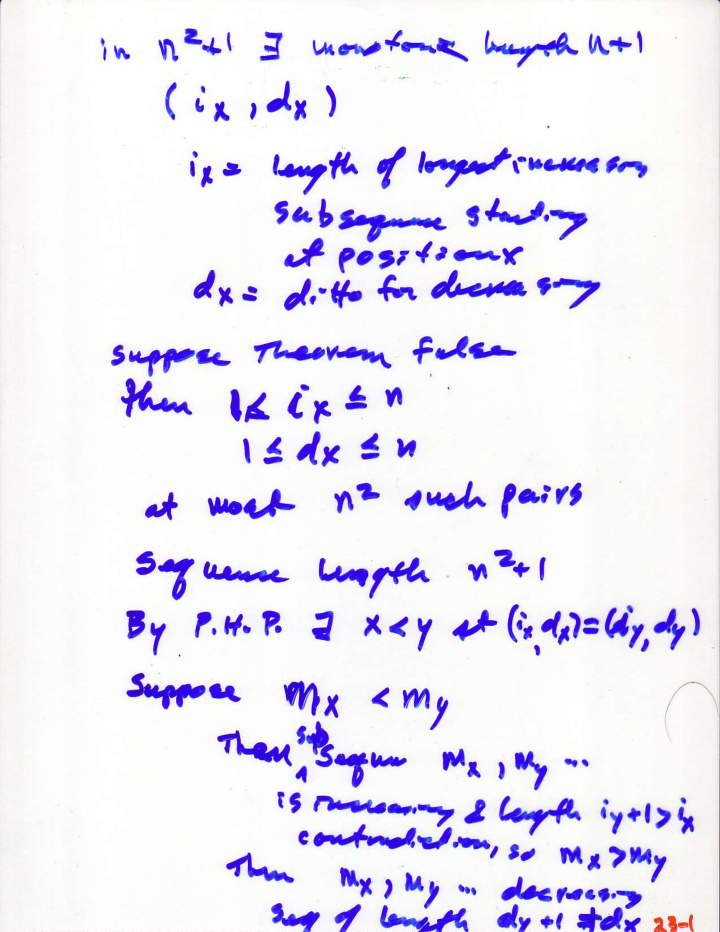 in n²+1 ∃ monotone length n+1
(ix, dx)
ix = length of longest increasing
subsequence starting
at position x
dx = ditto for decreasing
suppose Theorem false
then 1≤ ix ≤ n
1 ≤ dx ≤ n
at most n² such pairs
Sequence length n²+1
By P.H.P. ∃ x<y st (ix, dx)=(iy, dy)
Suppose mx < my
sub
Then ^ sequen mx, my ...
is increasing & length iy+1 > ix
contradiction, so mx > my
Then mx, my ... decreasing
seq of length dy+1 ≠ dx 23-1